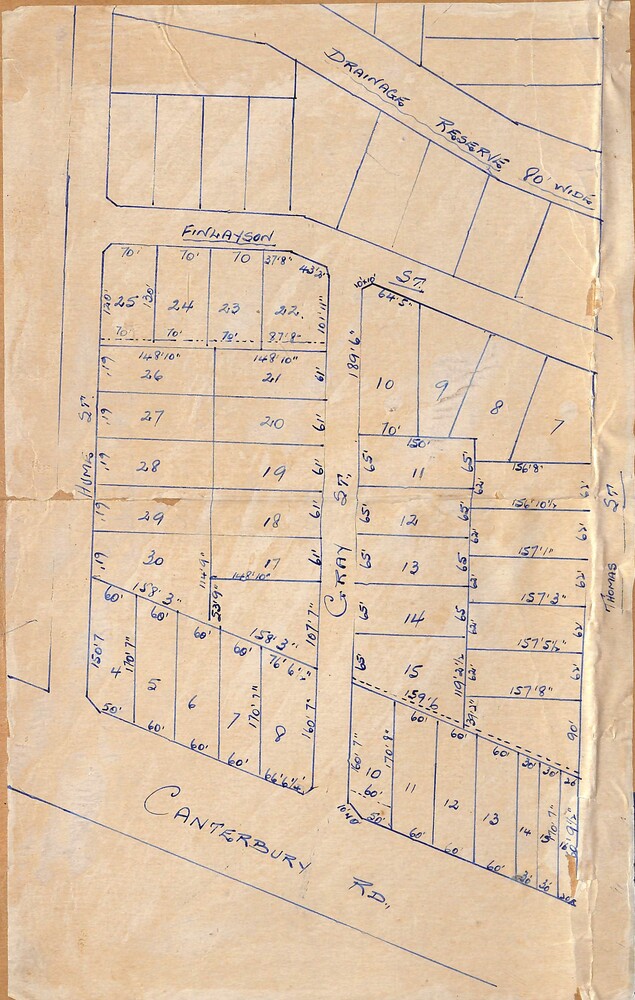 DRAINAGE RESERVE 80' WIDE
FINLAYSON ST.
70' 70' 70 37'8" 43'2"
120' 25 120' 24 23 22 101'11"
70' 70' 70' 87'8"
148'10" 148'10"
26 21 61'
27 20 61'
28 19 61'
29 18 61'
30 17 61'
HUME ST.
114'9" 148'10"
53'9"
158'3" 158'3"
60' 60' 60' 60' 76'6½"
107'7"
150'7 4 170'7" 5 6 7 170'7" 8 160'7"
50' 60' 60' 60' 66'6½"
GRAY ST.
64'5"
189'6" 10 9 8 7
70' 150'
65' 11 65' 156'8"
62' 156'10½ 62'
65' 12 65' 62' 157'1" 62'
65' 13 65 62' 157'3" 62'
65' 14 65 62' 157'5½" 62'
65' 15 119'2½" 62' 157'8" 62'
159'6 39'2" 90'
60' 60' 60'
160'7" 10 170'8" 11 12 13 14 170'7"
60'
50' 60' 60' 60'
THOMAS ST
CANTERBURY RD.,